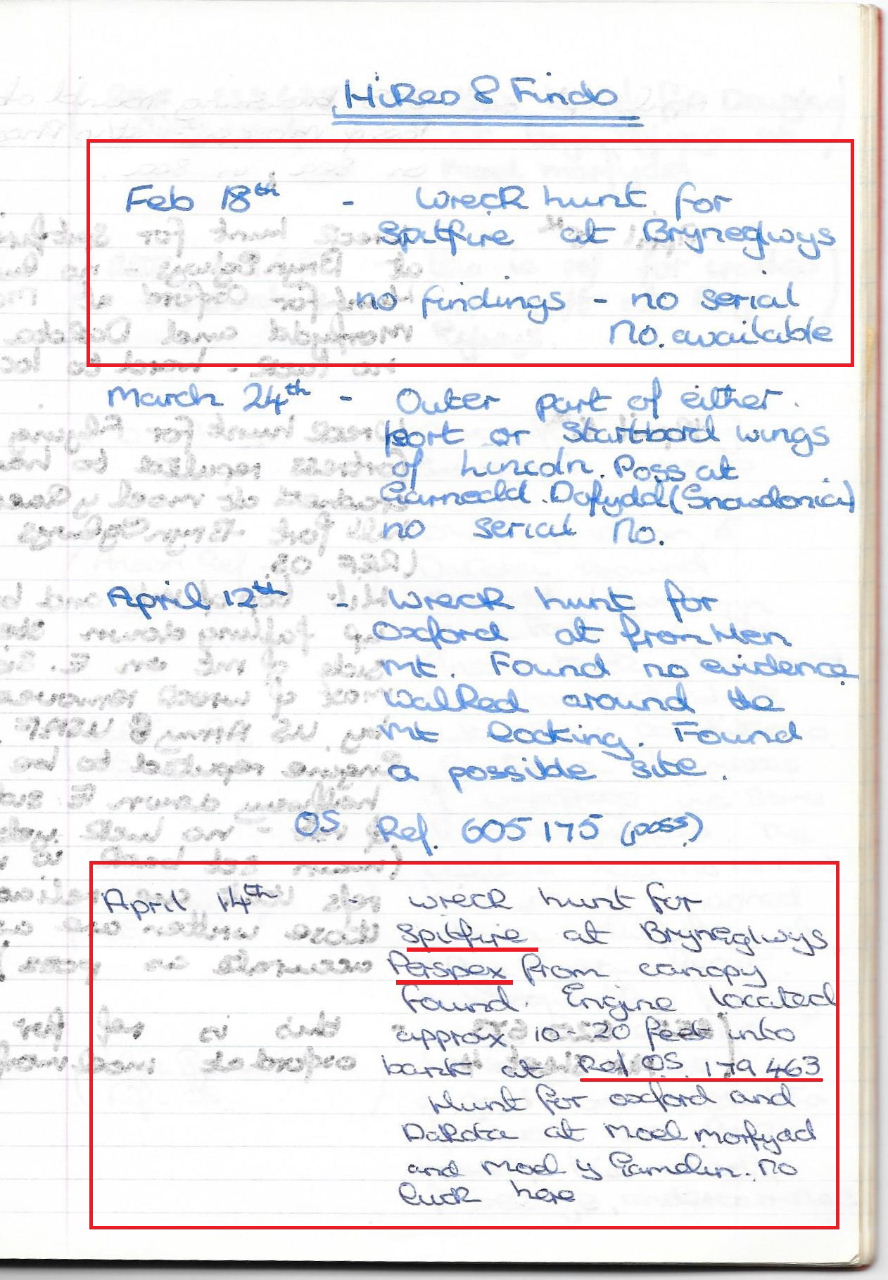 Hikes & Finds
Feb 18th - wreck hunt for
Spitfire at Bryneglwys
no findings - no serial
No. available
March 24th - Outer part of either
port or Startbord wings
of Lincoln. Poss at
Garnedd. Dafydd (Snowdonia)
no serial No.
April 12th - Wreck hunt for
Oxford at from Hen
mt. Found no evidence
walked around the
mt looking. Found
a possible site.
OS Ref. 605175 (poss)
April 14th - wreck hunt for
Spitfire at Bryneglwys
Perspex from canopy
found. Engine located
approx. 10-20 feet into
bank at Ref OS 179463
Hunt for oxford and
Dakota at moel morfyad
and moel y Gamelin. no
luck here